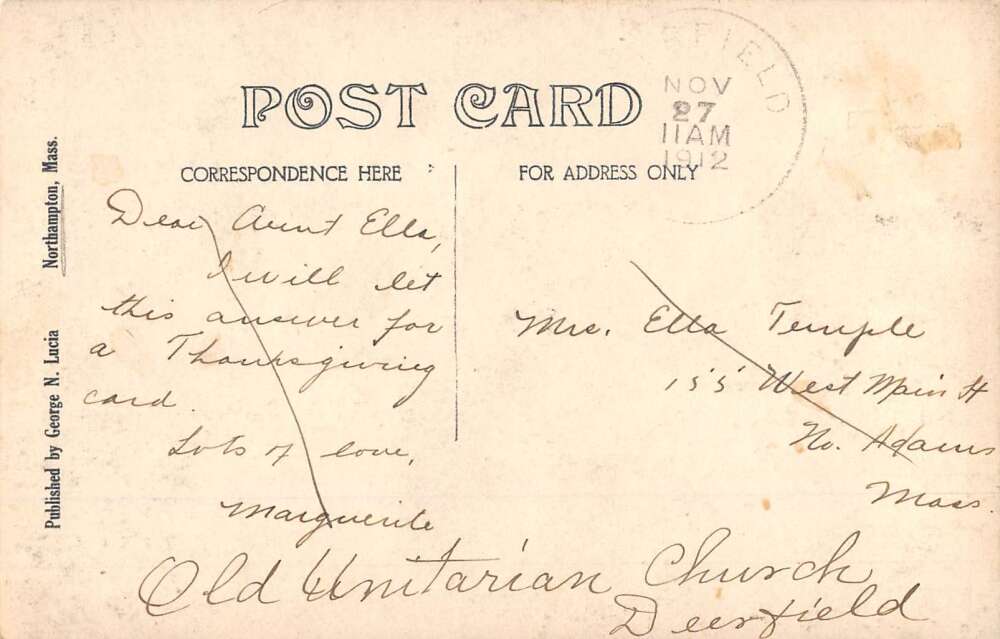 POST CARD
NOV
27
11AM
1912
CORRESPONDENCE HERE
FOR ADDRESS ONLY
Published by George N. Lucia Northampton, Mass.
Dear Aunt Ella,
I will let
this answer for
a Thanksgiving
card.
Lots of love,
Marguerite
Mrs. Ella Temple
155 West Main St
No. Adams
Mass.
Old Unitarian Church
Deerfield